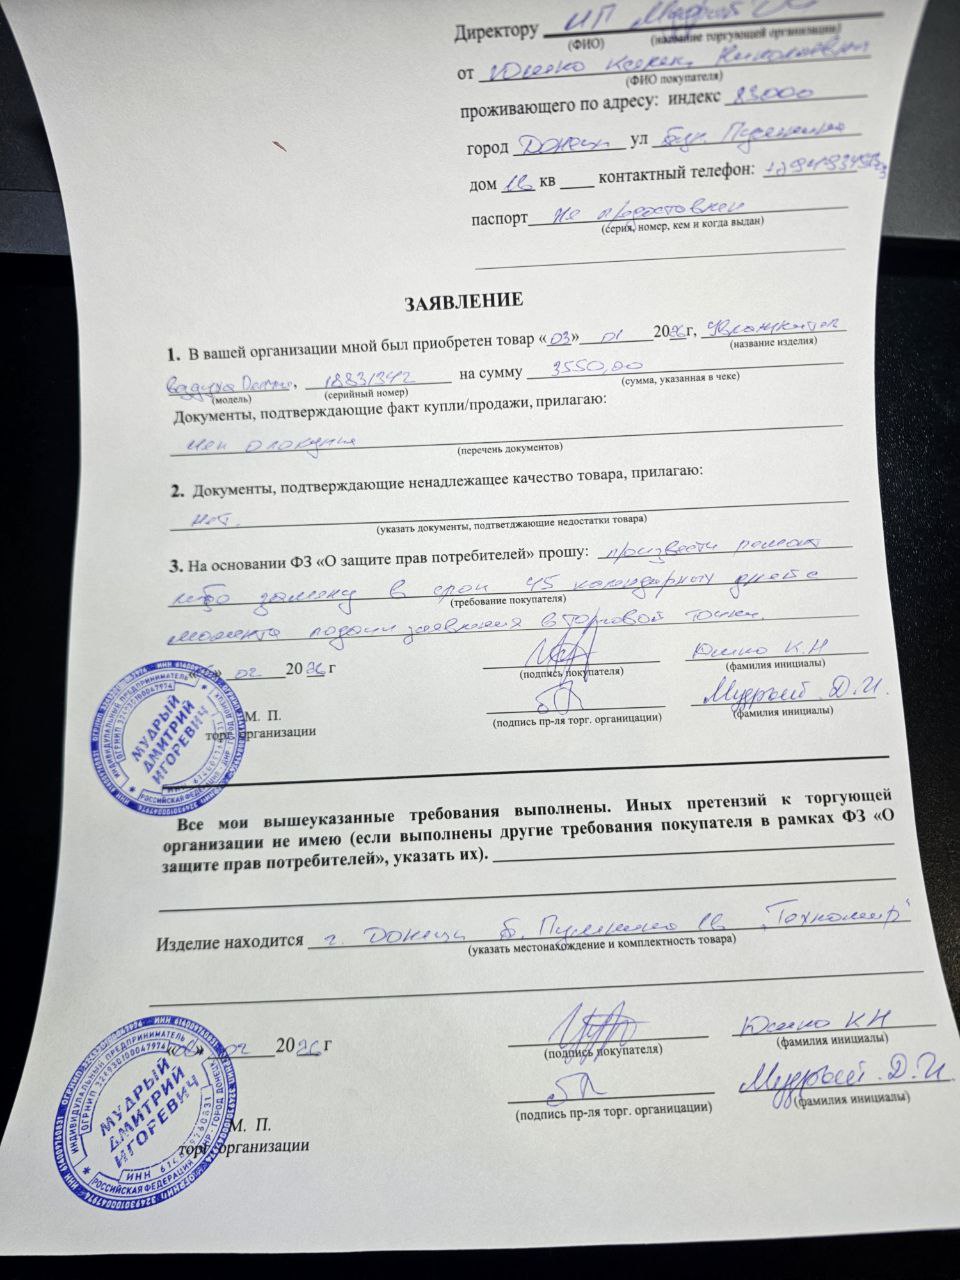 Директору ИП Мудрый
(ФИО) (название торгующей организации)
от Николаевны
(ФИО покупателя)
проживающего по адресу: индекс 83000
город Донецк ул бул. Пушкина
дом 1в кв контактный телефон:
паспорт не предоставлен
(серия, номер, кем и когда выдан)
ЗАЯВЛЕНИЕ
1. В вашей организации мной был приобретен товар «03» 01 2026г,
(название изделия)
воздуха 18831342 на сумму 3550,00
(модель) (серийный номер) (сумма, указанная в чеке)
Документы, подтверждающие факт купли/продажи, прилагаю:
(перечень документов)
2. Документы, подтверждающие ненадлежащее качество товара, прилагаю:
нет.
(указать документы, подтветджающие недостатки товара)
3. На основании ФЗ «О защите прав потребителей» прошу: произвести ремонт
либо замену в срок 45 календарных дней с
(требование покупателя)
момента подачи заявления в торговой точки.
02 2026 г Юшко К.Н
(подпись покупателя) (фамилия инициалы)
Мудрый Д.И.
М. П. (подпись пр-ля торг. организации) (фамилия инициалы)
торг. организации
ИНДИВИДУАЛЬНЫЙ ПРЕДПРИНИМАТЕЛЬ
МУДРЫЙ
ДМИТРИЙ
ИГОРЕВИЧ
РОССИЙСКАЯ ФЕДЕРАЦИЯ
Все мои вышеуказанные требования выполнены. Иных претензий к торгующей
организации не имею (если выполнены другие требования покупателя в рамках ФЗ «О
защите прав потребителей», указать их).
Изделие находится г. Донецк б. Пушкина 1в "Техномир"
(указать местонахождение и комплектность товара)
02 2026 г Юшко К Н
(подпись покупателя) (фамилия инициалы)
Мудрый Д.И.
(подпись пр-ля торг. организации) (фамилия инициалы)
М. П.
торг. организации
ИНДИВИДУАЛЬНЫЙ ПРЕДПРИНИМАТЕЛЬ
МУДРЫЙ
ДМИТРИЙ
ИГОРЕВИЧ
РОССИЙСКАЯ ФЕДЕРАЦИЯ